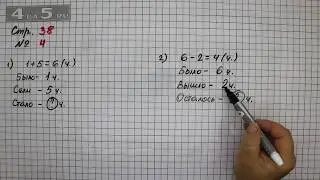 Стр. 38
№ 4
1) 1+5=6(ч.)
Было- 1ч.
Сели- 5ч.
Стало - ? ч.
2) 6-2=4(ч.)
Было- 6ч.
Вышло- 2ч.
Осталось- ч.